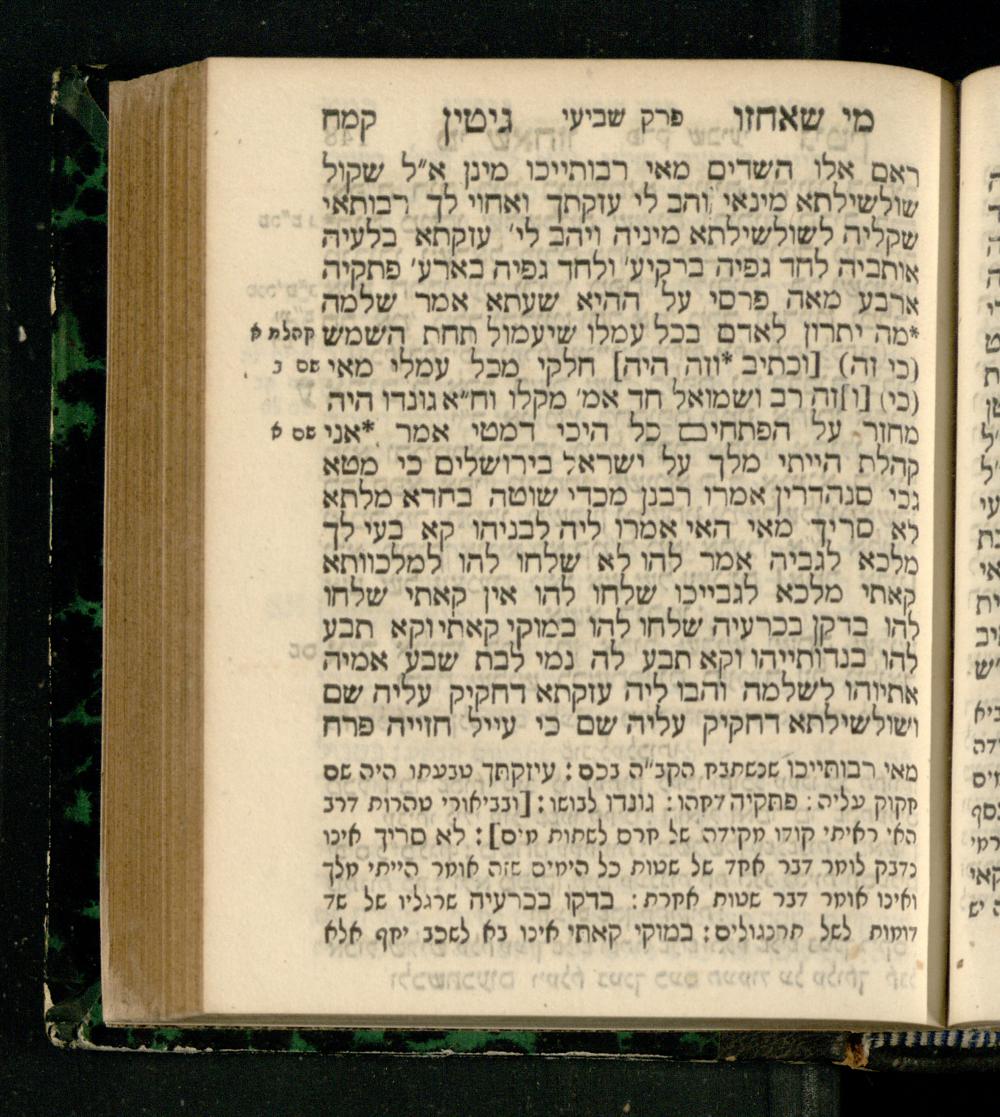 מי שאחזו פרק שביעי גיטין קמח
ראם אלו השדים מאי רבותייכו מינן א״ל שקול
שולשילתא מינאי והב לי עזקתך ואחוי לך רבותאי
שקליה לשולשילתא מיניה ויהב לי׳ עזקתא בלעיה
אותביה לחד גפיה ברקיע׳ ולחד גפיה בארע׳ פתקיה
ארבע מאה פרסי על ההיא שעתא אמר שלמה
*מה יתרון לאדם בכל עמלו שיעמול תחת השמש קהלת א
(כי זה) [וכתיב *וזה היה] חלקי מכל עמלי מאי שם ב
(כי) [ו]זה רב ושמואל חד אמ׳ מקלו וח״א גונדו היה
מחזר על הפתחים כל היכי דמטי אמר *אני שם א
קהלת הייתי מלך על ישראל בירושלים כי מטא
גכי סנהדרין אמרו רבנן מכדי שוטה בחדא מלתא
לא סריך מאי האי אמרו ליה לבניהו קא בעי לך
מלכא לגביה אמר להו לא שלחו להו למלכוותא
קאתי מלכא לגבייכו שלחו להו אין קאתי שלחו
להו בדקן בכרעיה שלחו להו במוקי קאתי וקא תבע
להו בנדותייהו וקא תבע לה נמי לבת שבע אמיה
אתיוהו לשלמה והבו ליה עזקתא דחקיק עליה שם
ושולשילתא דחקיק עליה שם כי עייל חזייה פרח
מאי רבותייכו שנשתבח הקב״ה בכם : עיזקתך טבעתו היה שם
חקוק עליה : פתקיה זרקהו : גונדו לבושו : [ובביאורי טהרות דרב
האי ראיתי קודו מקידה של חרס לשתות מים] : לא סריך אינו
נדבק לומר דבר אחד של שטות כל הימים שזה אומר הייתי מלך
ואינו אומר דבר שטות אחרת : בדקו בכרעיה שרגליו של שד
דומות לשל תרנגולים : במוקי קאתי אינו בא לשכב יחף אלא